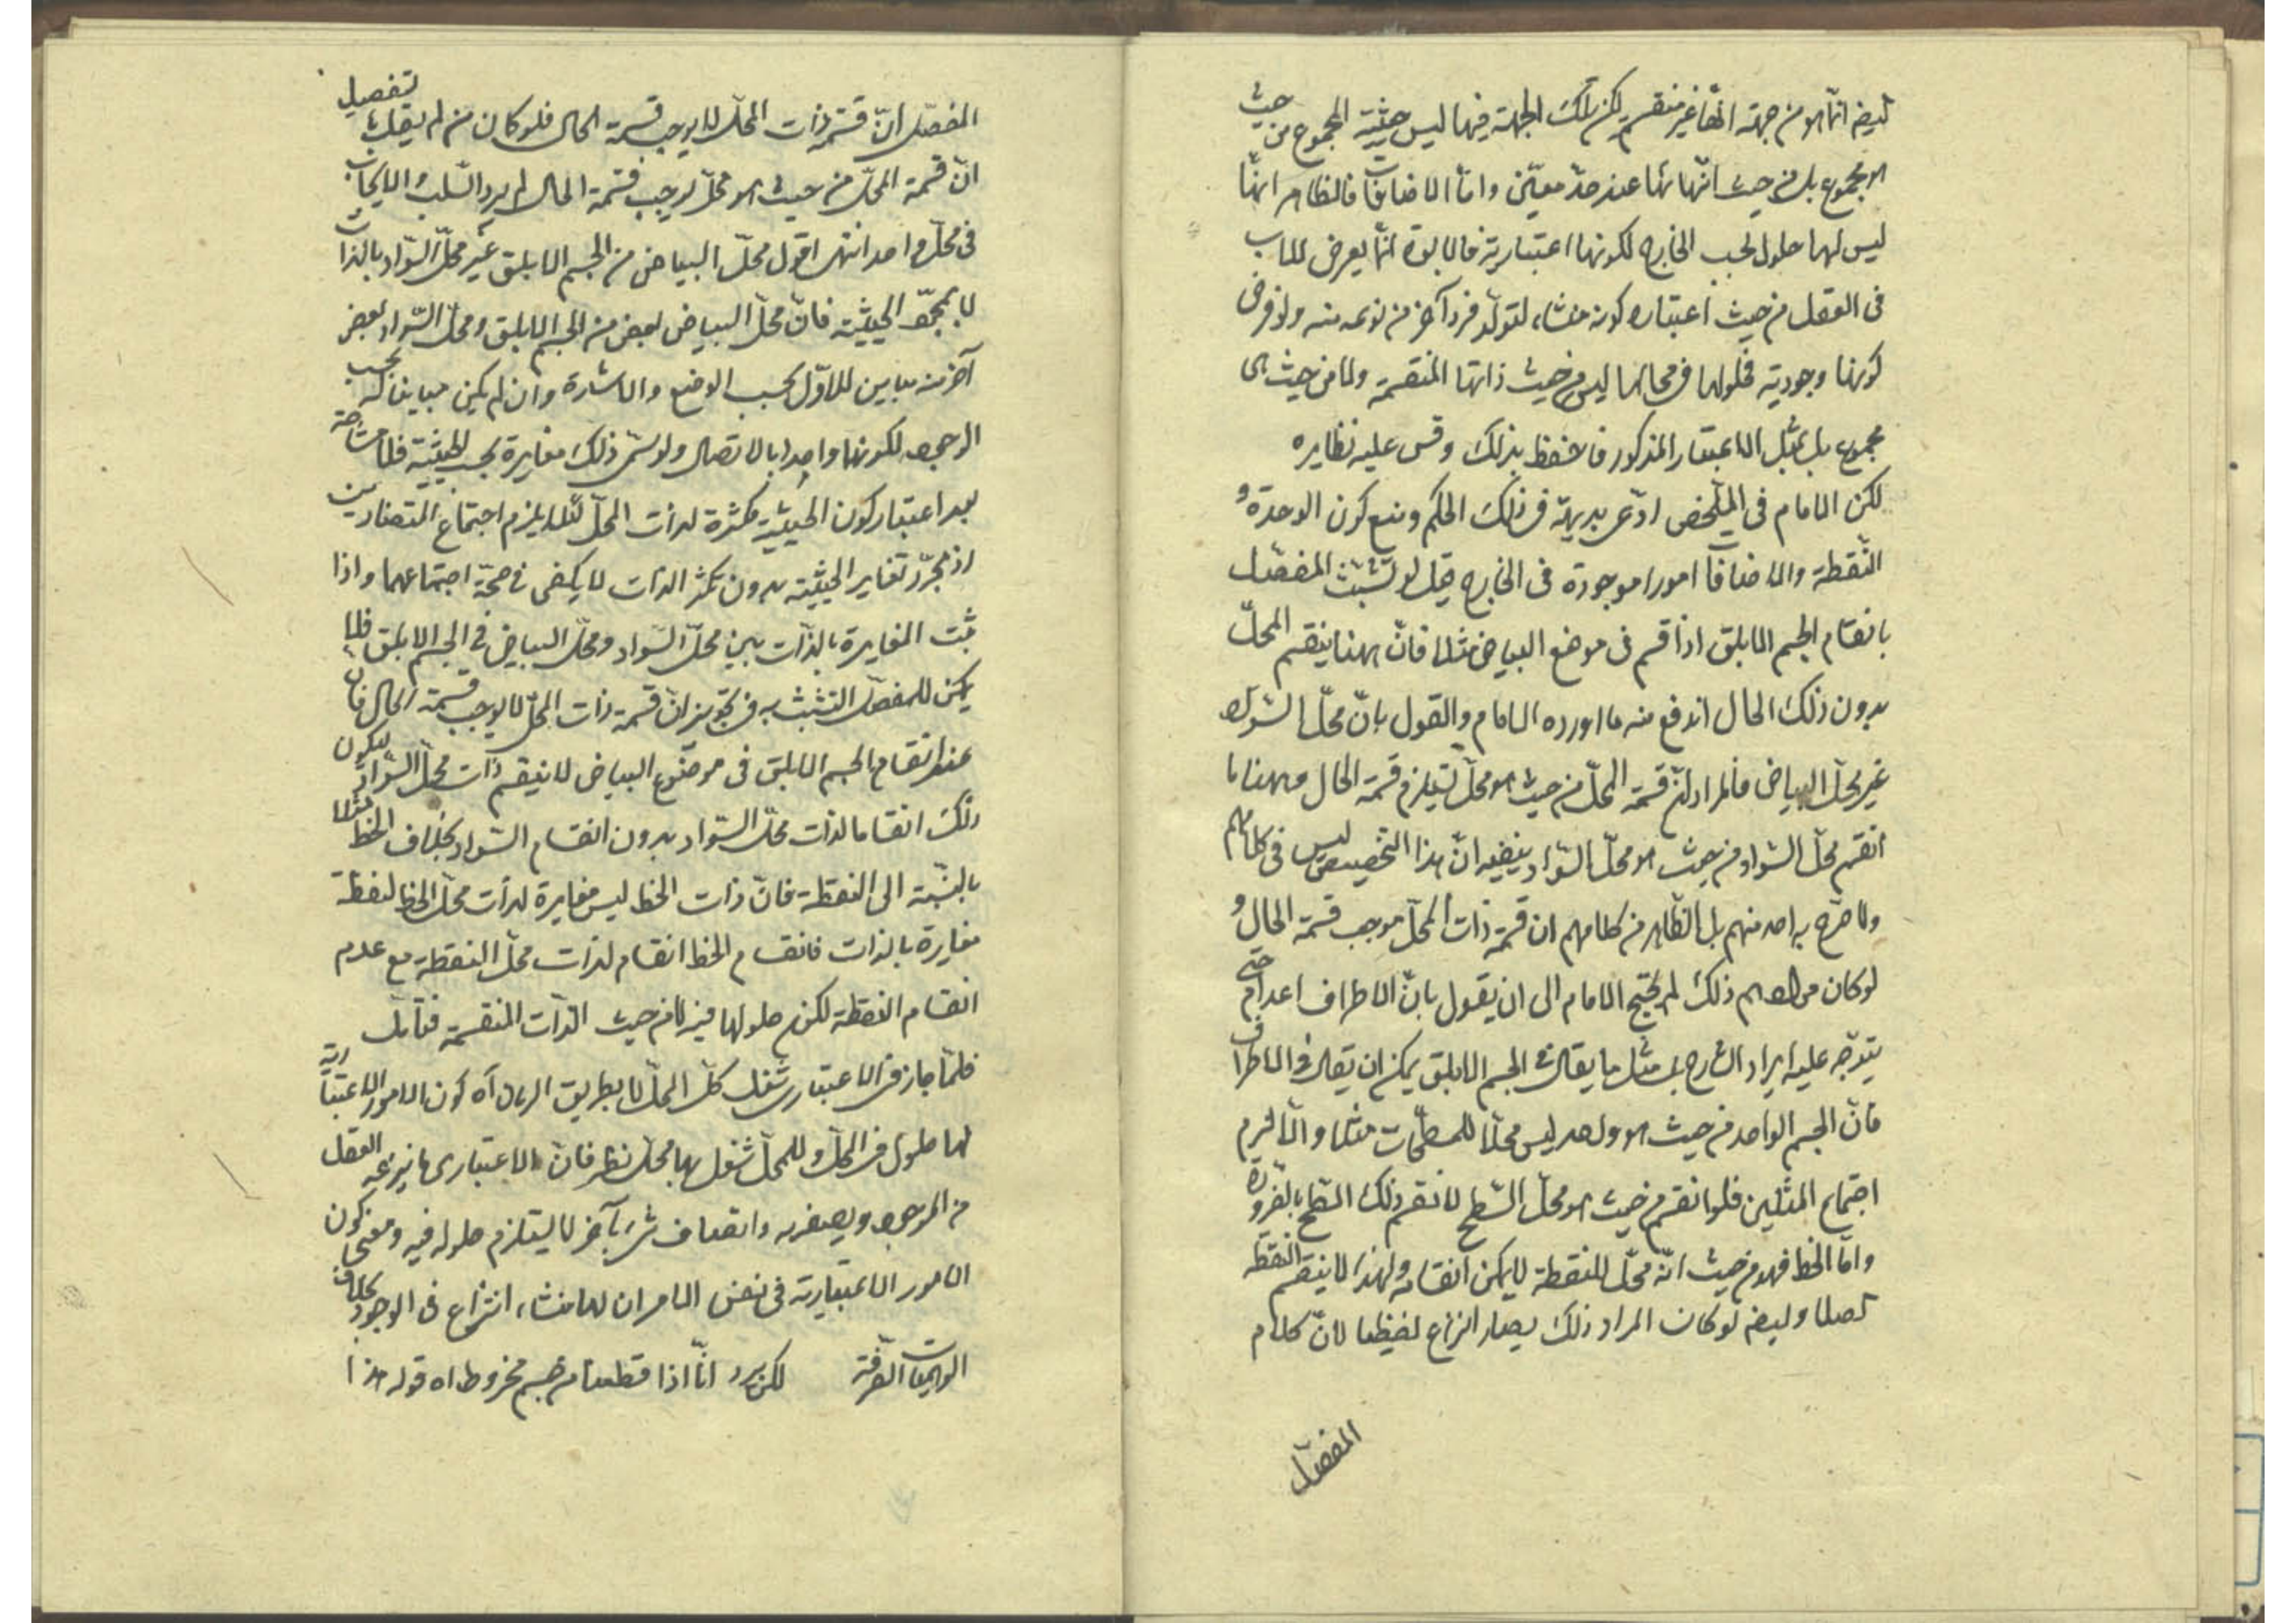 ايضا انما هو من جهة انها غير منقسم لكن تلك الجهة فيها ليس حيثية المجموع من حيث
هو مجموع بل من حيث انتهائها عند حد معين واما الاضافات فالظاهر انها
ليس لها حلول بحسب الخارج لكونها اعتبارية فالابوة انما يعرض للاب
فى العقل من حيث اعتباره كونه منشاء لتولد فرد آخر من نوعه منه ولو فرض
كونها وجودية فحلولها فى محالها ليس من حيث ذاتها المنقسمة ولا من حيث هى
مجموع بل بمثل الاعتبار المذكور فاحفظ بذلك وقس عليه نظايره
لكن الامام فى الملخص ادعى بديهة فى ذلك الحكم ومنع كون الوحدة و
النقطة والاضافات امورا موجودة فى الخارج قيل لو تشبث المفصل
بانقسام الجسم الابلق اذا قسم فى موضع البياض مثلا فان ههنا ينقسم المحل
بدون ذلك الحال اندفع منه ما اورده الامام والقول بان محل السواد
غير محل البياض فالمراد ان قسمة المحل من حيث هو محل تستلزم قسمة الحال وههنا ما
انقسم محل السواد من حيث هو محل السواد ينفيه ان هذا التخصيص ليس فى كلامهم
ولا صرح به احد منهم بل الظاهر من كلامهم ان قسمة ذات المحل موجب قسمة الحال و
لو كان مرادهم ذلك لم يحتج الامام الى ان يقول بان الاطراف اعدام حتى
يتوجه عليه ايراد الشارح بل مثل ما يقال فى الجسم الابلق يمكن ان يقال فى الاطراف
فان الجسم الواحد من حيث هو واحد ليس محلا للسطحات مثلا والا لزم
اجتماع المثلين فلو انقسم من حيث هو محل السطح لانقسم ذلك السطح بالضرورة
واما الخط فهو من حيث انه محل للنقطة لا يمكن انقسامه ولهذا لا ينقسم النقطة
اصلا وايضا لو كان المراد ذلك يصار النزاع لفظيا لان كلام
المفصل
المفصل ان قسمة ذات المحل لا يوجب قسمة الحال فلو كان من لم يقل بتفصيل
ان قسمة المحل من حيث هو محل يوجب قسمة الحال لم يرد السلب والايجاب
فى محل واحد انتهى اقول محل البياض من الجسم الابلق غير محل السواد بالذات
لا بمجرد الحيثية فان محل البياض بعض من الجسم الابلق ومحل السواد بعض
آخر منه مباين للاول بحسب الوضع والاشارة وان لم يكن مباينا له بحسب
الوجود لكونها واحدا بالاتصال ولو سمى ذلك مغايرة بحسب الحيثية فلا مشاحة
بعد اعتبار كون الحيثية مكثرة لذات المحل لئلا يلزم اجتماع المتضادين
اذ مجرد تغاير الحيثية بدون تكثر الذات لا يكفى فى صحة اجتماعهما واذا
ثبت المغايرة بالذات بين محل السواد ومحل البياض فى الجسم الابلق فلا
يمكن للمفصل التشبث به فى تجويز ان قسمة ذات المحل لا يوجب قسمة الحال فان
عند انقسام الجسم الابلق فى موضوع البياض لا ينقسم ذات محل السواد ليكون
ذلك انقساما لذات محل السواد بدون انقسام السواد بخلاف الخط مثلا
بالنسبة الى النقطة فان ذات الخط ليس مغايرة لذات محل الخط لنقطة
مغايرة بالذات فانقسام الخط انقسام لذات محل النقطة مع عدم
انقسام النقطة لكن حلولها فيه لا من حيث الذات المنقسمة فتامل
فلما جاز فى الاعتبار شغل كل المحل لا بطريق السريان آه كون الامور الاعتبارية
لها حلول فى المحل وللمحل شغل بها محل نظر فان الاعتبارى ما ينزعه العقل
من الموجود ويصفه به واتصاف شىء بآخر لا يستلزم حلوله فيه ومعنى كون
الامور الاعتبارية فى نفس الامر ان لها منشاء انتزاع فى الوجود بخلاف
الوهميات الصرفة لكن يرد انا اذا قطعنا من جسم مخروط اه قوله هذا